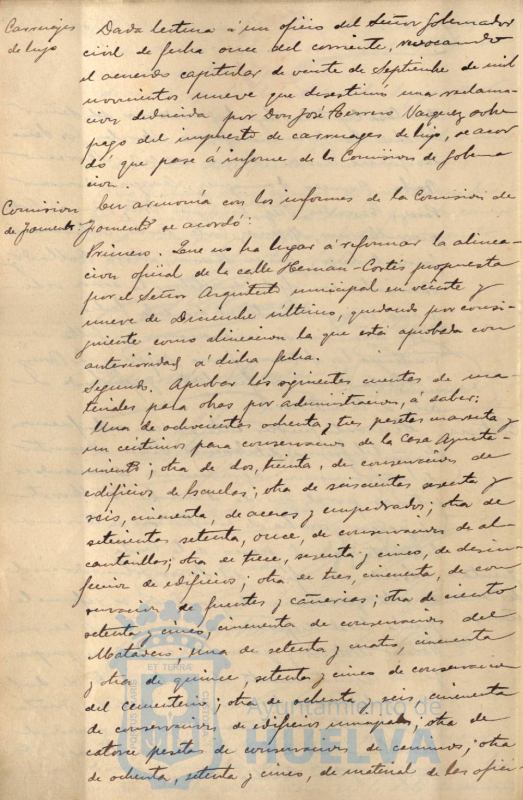 Carruajes
de lujo
Dada lectura á un oficio del Señor Gobernador
civil de fecha once del corriente, revocando
el acuerdo capitular de veinte de Septiembre de mil
novecientos nueve que desestimó una reclama-
cion deducida por Don José Borrero Vazquez sobre
pago del impuesto de carruages de lujo, se acor-
dó que pase á informe de la Comision de Goberna-
cion.
Comision
de Fomento
En armonía con los informes de la Comision de
Fomento se acordó:
Primero. Que no ha lugar á reformar la alinea-
cion oficial de la calle Hernan-Cortés propuesta
por el Señor Arquitecto municipal en veinte y
nueve de Diciembre último, quedando por consi-
guiente como alineacion la que está aprobada con
anterioridad á dicha fecha.
Segundo. Aprobar las siguientes cuentas de ma-
teriales para obras por administracion, á saber:
Una de ochocientas ochenta y tres pesetas cuarenta y
un céntimos para conservacion de la Casa Ayunta-
miento; otra de dos, treinta, de conservacion de
edificios de Escuelas; otra de seiscientas sesenta y
seis, cincuenta, de aceras y empedrados; otra de
setecientas setenta, once, de conservacion de al-
cantarillas; otra de trece, sesenta y cinco, de desin-
feccion de edificios; otra de tres, cincuenta, de con-
servacion de fuentes y cañerias; otra de ciento
setenta y cinco, cincuenta de conservacion del
Matadero; una de setenta y cuatro, cincuenta
y otra de quince, setenta y cinco de conservacion
del cementerio; otra de ochenta y seis, cincuenta
de conservacion de edificios municipales; otra de
catorce pesetas de conservacion de caminos; otra
de ochenta, setenta y cinco, de material de las ofici-
ET TERRÆ
Ayuntamiento de
HUELVA